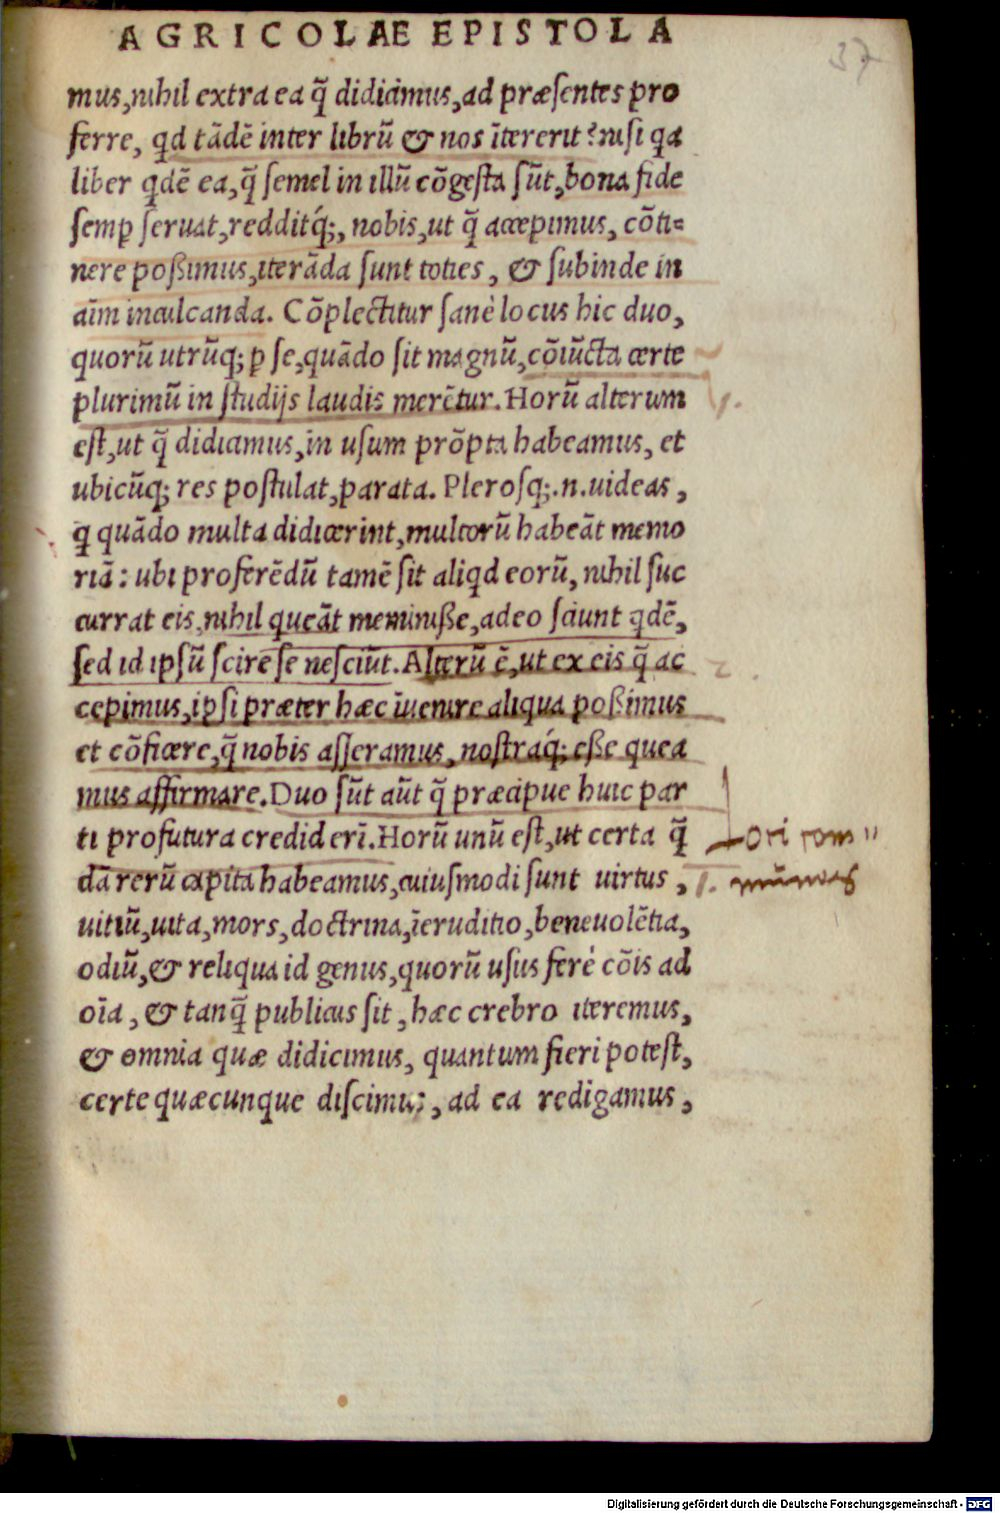 AGRICOLAE EPISTOLA
37
mus,nihil extra ea q̃ didicimus,ad præſentes pro
ferre, qd tãdẽ inter librũ & nos ĩtererit?niſi qa
liber qdẽ ea,q̃ ſemel in illũ cõgeſta ſũt,bona fide
ſemp ſeruat,redditq́;, nobis,ut q̃ accepimus, cõti=
nere poßimus,iterãda ſunt toties, & ſubinde in
aĩm inculcanda. Cõplectitur ſanè locus hic duo,
quorũ utrũq; p ſe,quãdo ſit magnũ,cõiũcta certe
plurimũ in ſtudijs laudis merẽtur.Horũ alterum
1.
eſt,ut q̃ didicimus,in uſum prõpta habeamus, et
ubicũq; res poſtulat,parata. Pleroſq;.n.uideas,
q quãdo multa didicerint,multorũ habeãt memo
riã: ubi proferẽdũ tamẽ ſit aliqd eorũ, nihil ſuc
currat eis,nihil queãt meminiſſe,adeo ſciunt qdẽ,
ſed id ipſũ ſcire ſe neſciũt.Alterũ ẽ,ut ex eis q̃ ac
2.
cepimus,ipſi præter hæc ĩuenire aliqua poßimus
et cõficere,q̃ nobis aſſeramus, noſtraq́; eße quea
mus affirmare.Duo ſũt aũt q̃ præcipue huic par
ti profutura crediderĩ.Horũ unũ eſt,ut certa q̃
dã rerũ capita habeamus,cuiuſmodi ſunt uirtus,
1.
uitiũ,uita,mors,doctrina,ĩeruditio,beneuolẽtia,
odiũ,& reliqua id genus,quorũ uſus ferè cõis ad
oĩa, & tanq̃ publicus ſit, hæc crebro iteremus,
& omnia quæ didicimus, quantum fieri poteſt,
certe quæcunque diſcimus, ad ea redigamus,
Digitalisierung gefördert durch die Deutsche Forschungsgemeinschaft - DFG